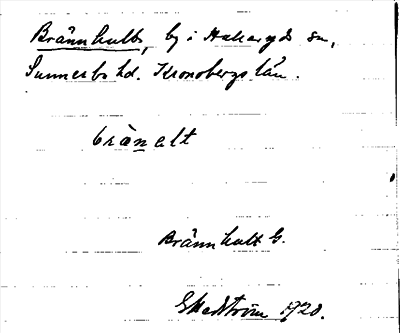 Brännhult, by i Hallaryds sn,
Sunnerbo hd. Kronobergs län.
brànalt
Brännhult G.
G Hedström 1920.